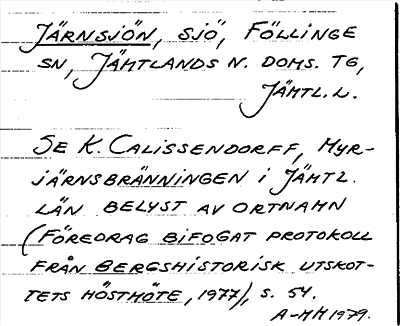 JÄRNSJÖN, SJÖ, FÖLLINGE
SN, JÄMTLANDS N. DOMS. TG,
JÄMTL. L.
SE K. CALISSENDORFF, MYR-
JÄRNSBRÄNNINGEN I JÄMTL.
LÄN BELYST AV ORTNAMN
(FÖREDRAG BIFOGAT PROTOKOLL
FRÅN BERGSHISTORISK UTSKOT-
TETS HÖSTMÖTE, 1977), S. 54.
A-MH 1979.